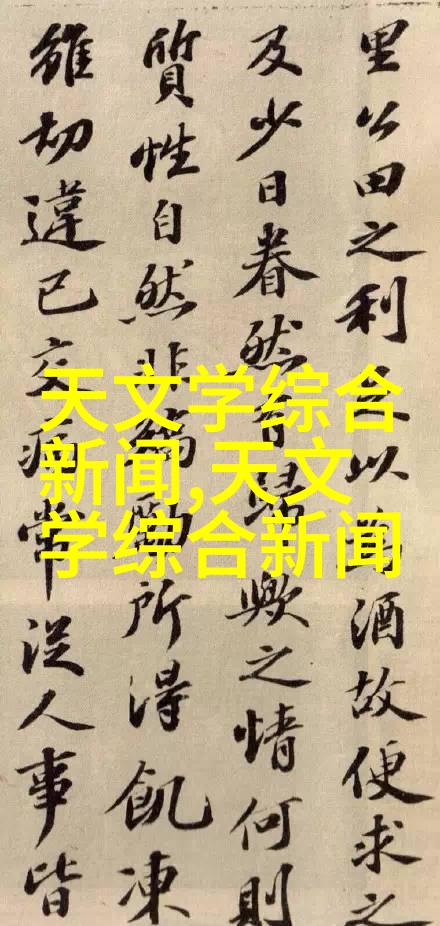 里公田之利足以為酒故便求之
及少日眷然有歸歟之情何則
質性自然非矯勵所得飢凍
雖切違已交病常從人事皆
天文学综合
新闻,天文
学综合新闻